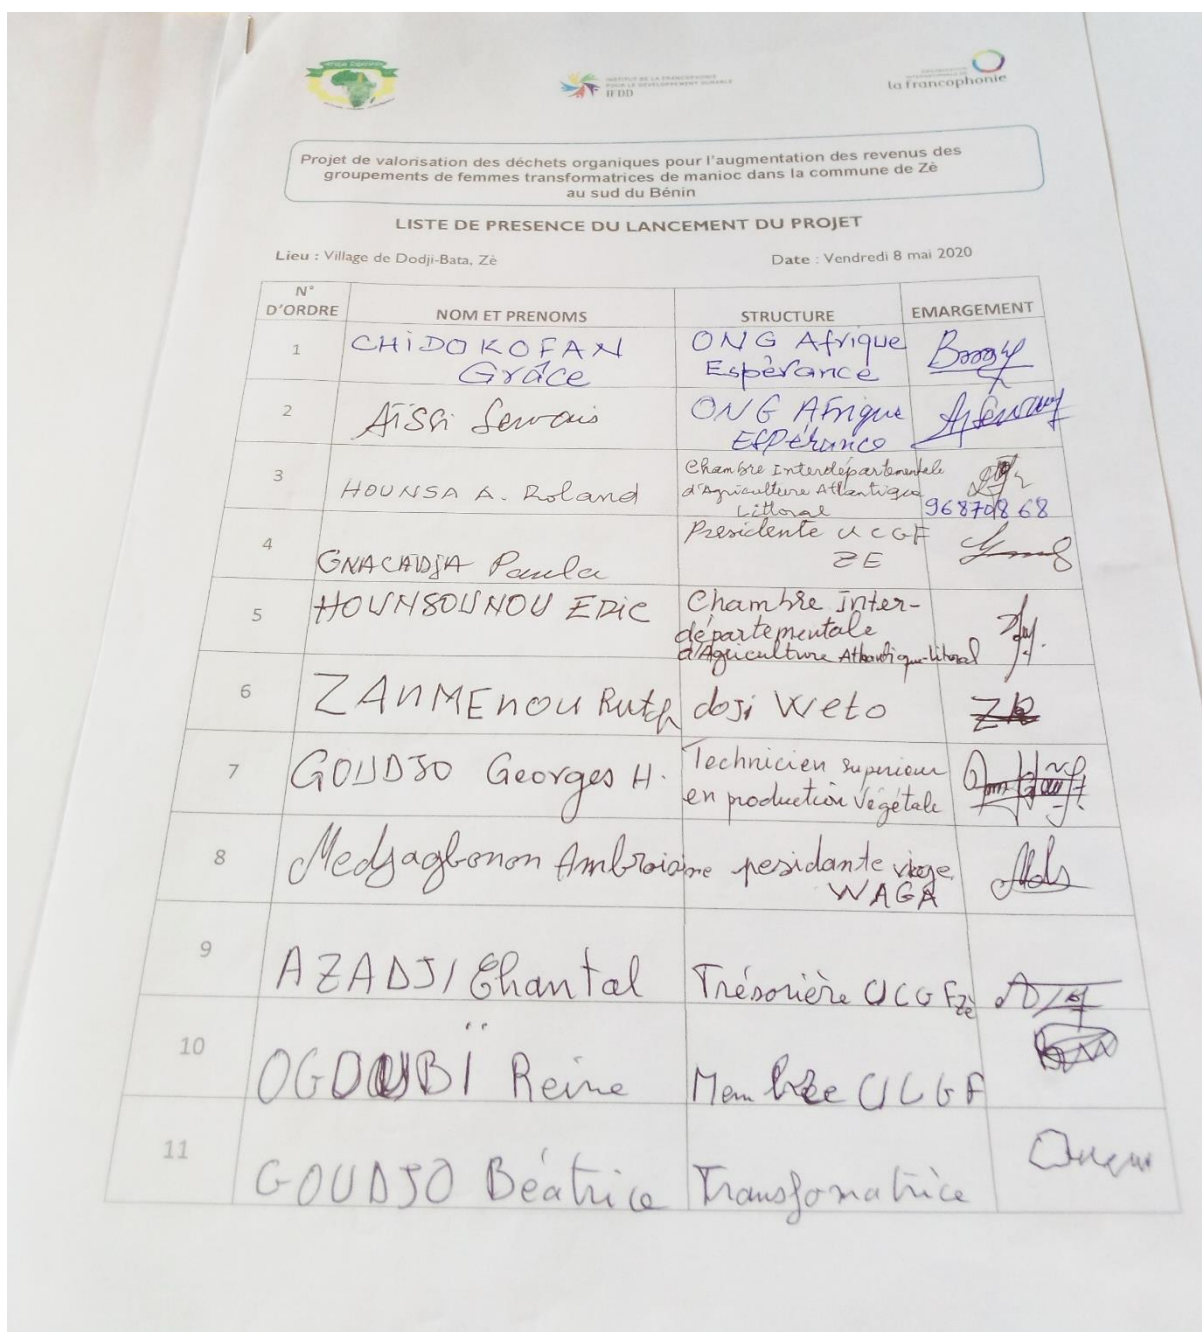 Afrique Espérance
INSTITUT DE LA FRANCOPHONIE
POUR LE DÉVELOPPEMENT DURABLE
IFDD
ORGANISATION
INTERNATIONALE DE
la francophonie
Projet de valorisation des déchets organiques pour l'augmentation des revenus des
groupements de femmes transformatrices de manioc dans la commune de Zè
au sud du Bénin
LISTE DE PRESENCE DU LANCEMENT DU PROJET
Lieu : Village de Dodji-Bata, Zè
Date : Vendredi 8 mai 2020
N°
D'ORDRE
NOM ET PRENOMS
STRUCTURE
EMARGEMENT
1
CHIDOKOFAN
Grâce
ONG Afrique
Espérance
2
Aïssi Servais
ONG Afrique
ESPérance
3
HOUNSA A. Roland
Chambre Interdépartementale
d'Agriculture Atlantique
Littoral
96870868
4
GNACADJA Paula
Présidente UCGF
ZE
5
HOUNSOUNOU EDIC
Chambre inter-
départementale
d'Agriculture Atlantique-Litoral
6
ZANMENOU Ruth
doji Weto
7
GOUDJO Georges H.
Technicien superieur
en production végétale
8
Medjagbonon Ambroisine
pesidante
WAGA
9
AZADJI Chantal
Trésorière UCGF Zè
10
OGOUBÏ Reine
Membre UCGF
11
GOUDJO Béatrice
Transfomatrice